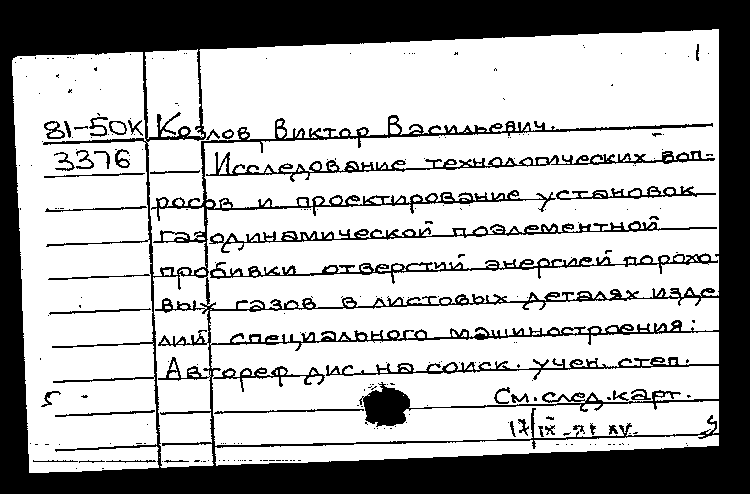 1
81-50К Козлов, Виктор Васильевич.
3376 Исследование технологических воп-
росов и проектирование установок
газодинамической поэлементной
пробивки отверстий энергией порохо-
вых газов в листовых деталях изде
лий специального машиностроения:
Автореф. дис. на соиск. учен. степ.
См. след. карт.
17/IX